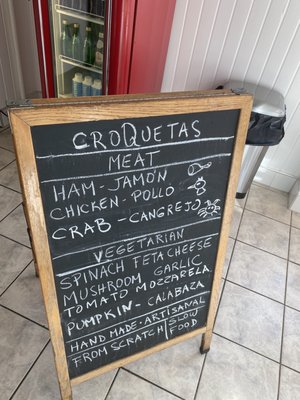 CROQUETAS
MEAT
HAM - JAMÓN
CHICKEN - POLLO
CRAB - CANGREJO
VEGETARIAN
SPINACH FETA CHEESE
MUSHROOM GARLIC
TOMATO MOZZARELLA
PUMPKIN - CALABAZA
HAND MADE - ARTISANAL
FROM SCRATCH
SLOW
FOOD